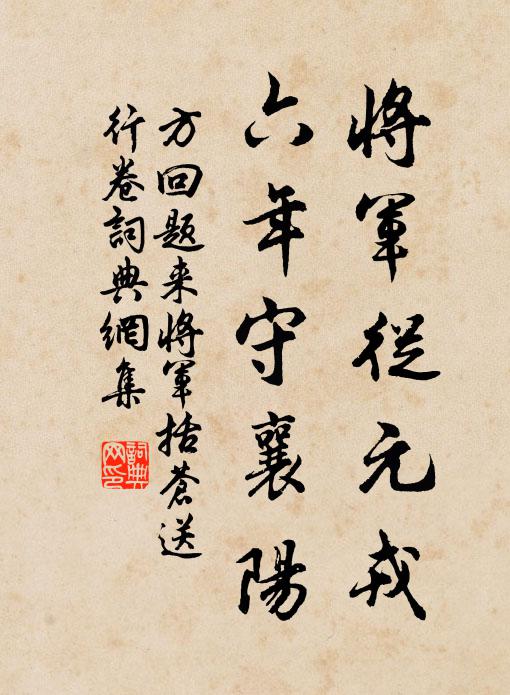 將軍從元戎
六年守襄陽
方回题来將軍括蒼送
行卷詞典網集
詞典
网印